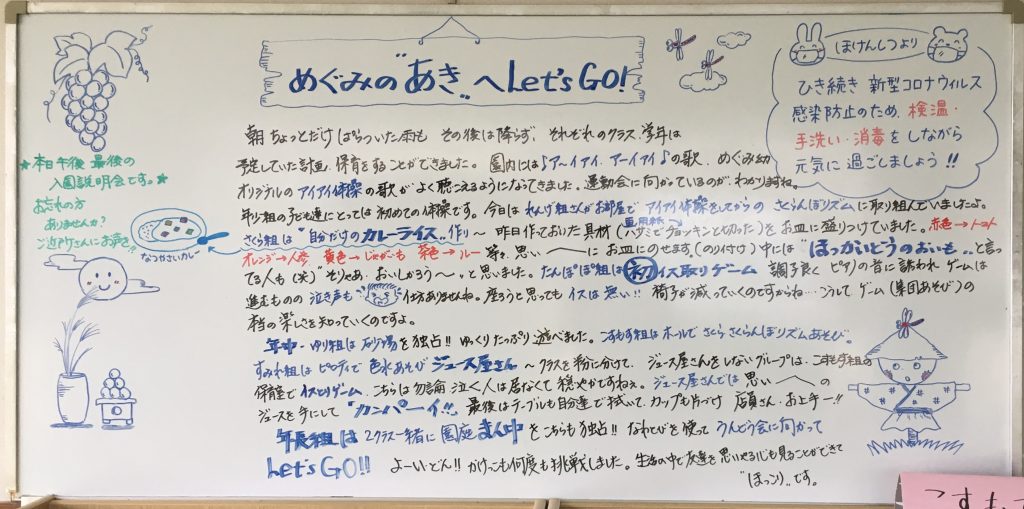 めぐみの"あき"へLet's GO!
ほけんしつより
ひき続き 新型コロナウィルス
感染防止のため、検温・
手洗い・消毒をしながら
元気に過ごしましょう!!
★本日午後 最後の
入園説明会です。★
お忘れの方
ありませんか?
ご近所さんにお声を!!
なつやさいカレー
朝 ちょっとだけ ぱらついた雨も その後は降らず、それぞれのクラス、学年は
予定していた計画、保育をすることができました。園内には♪アーイアイ、アーイアイ♪の歌、めぐみ幼
オリジナルのアイアイ体操の歌がよく聴こえるようになってきました。運動会に向かっているのが、わかりますね。
年少組の子ども達にとっては初めての体操です。今日は れんげ組さんがお部屋で アイアイ体操をしてからの さくらんぼリズムに取り組んでいましたよ。
さくら組は"自分だけのカレーライス"作り〜 昨日作っておいた具材(画用紙をハサミでチョッキンと切った)をお皿に盛りつけていました。赤色→トマト
オレンジ→人参 黄色→じゃがいも 茶色→ルー 等を、思い にお皿にのせます。(のり付け)中には"ほっかいどうのおいも"と言っ
てる人も(笑)"そりゃあ、おいしそう〜"と思いました。たんぽぽ組は初イス取りゲーム 調子良く ピアノの音に誘われ ゲームは
進むものの 泣き声も 仕方ありませんね。座ろうと思っても イスは無い!! 椅子が減っていくのですからね…こうして ゲーム(集団あそび)の
本当の楽しさを知っていくのですよ。
年中・ゆり組は 砂場を独占!! ゆっくりたっぷり遊べました。こすもす組はホールで さくらさくらんぼリズムあそび。
すみれ組は ピロティで 色水あそび ジュース屋さん 〜クラスを 分けて、ジュース屋さんをしないグループは、こすもす組の
保育室で イスとりゲーム、こちらは勿論 泣く人は居なくて 穏やかですねぇ。ジュース屋さんでは 思い の
ジュースを手にして "カンパーイ!!" 最後はテーブルも自分達で拭いて、カップも片づけ 店員さん、お上手ー!!
年長組は 2クラス一緒に 園庭 まん中をこちらも独占!! なわとびを使って うんどう会に向かって
Let's GO!! よーいどん!! かけっこも何度も挑戦しました。生活の中で友達を思いやる心も見ることができて
"ほっこり"です。
こすもす